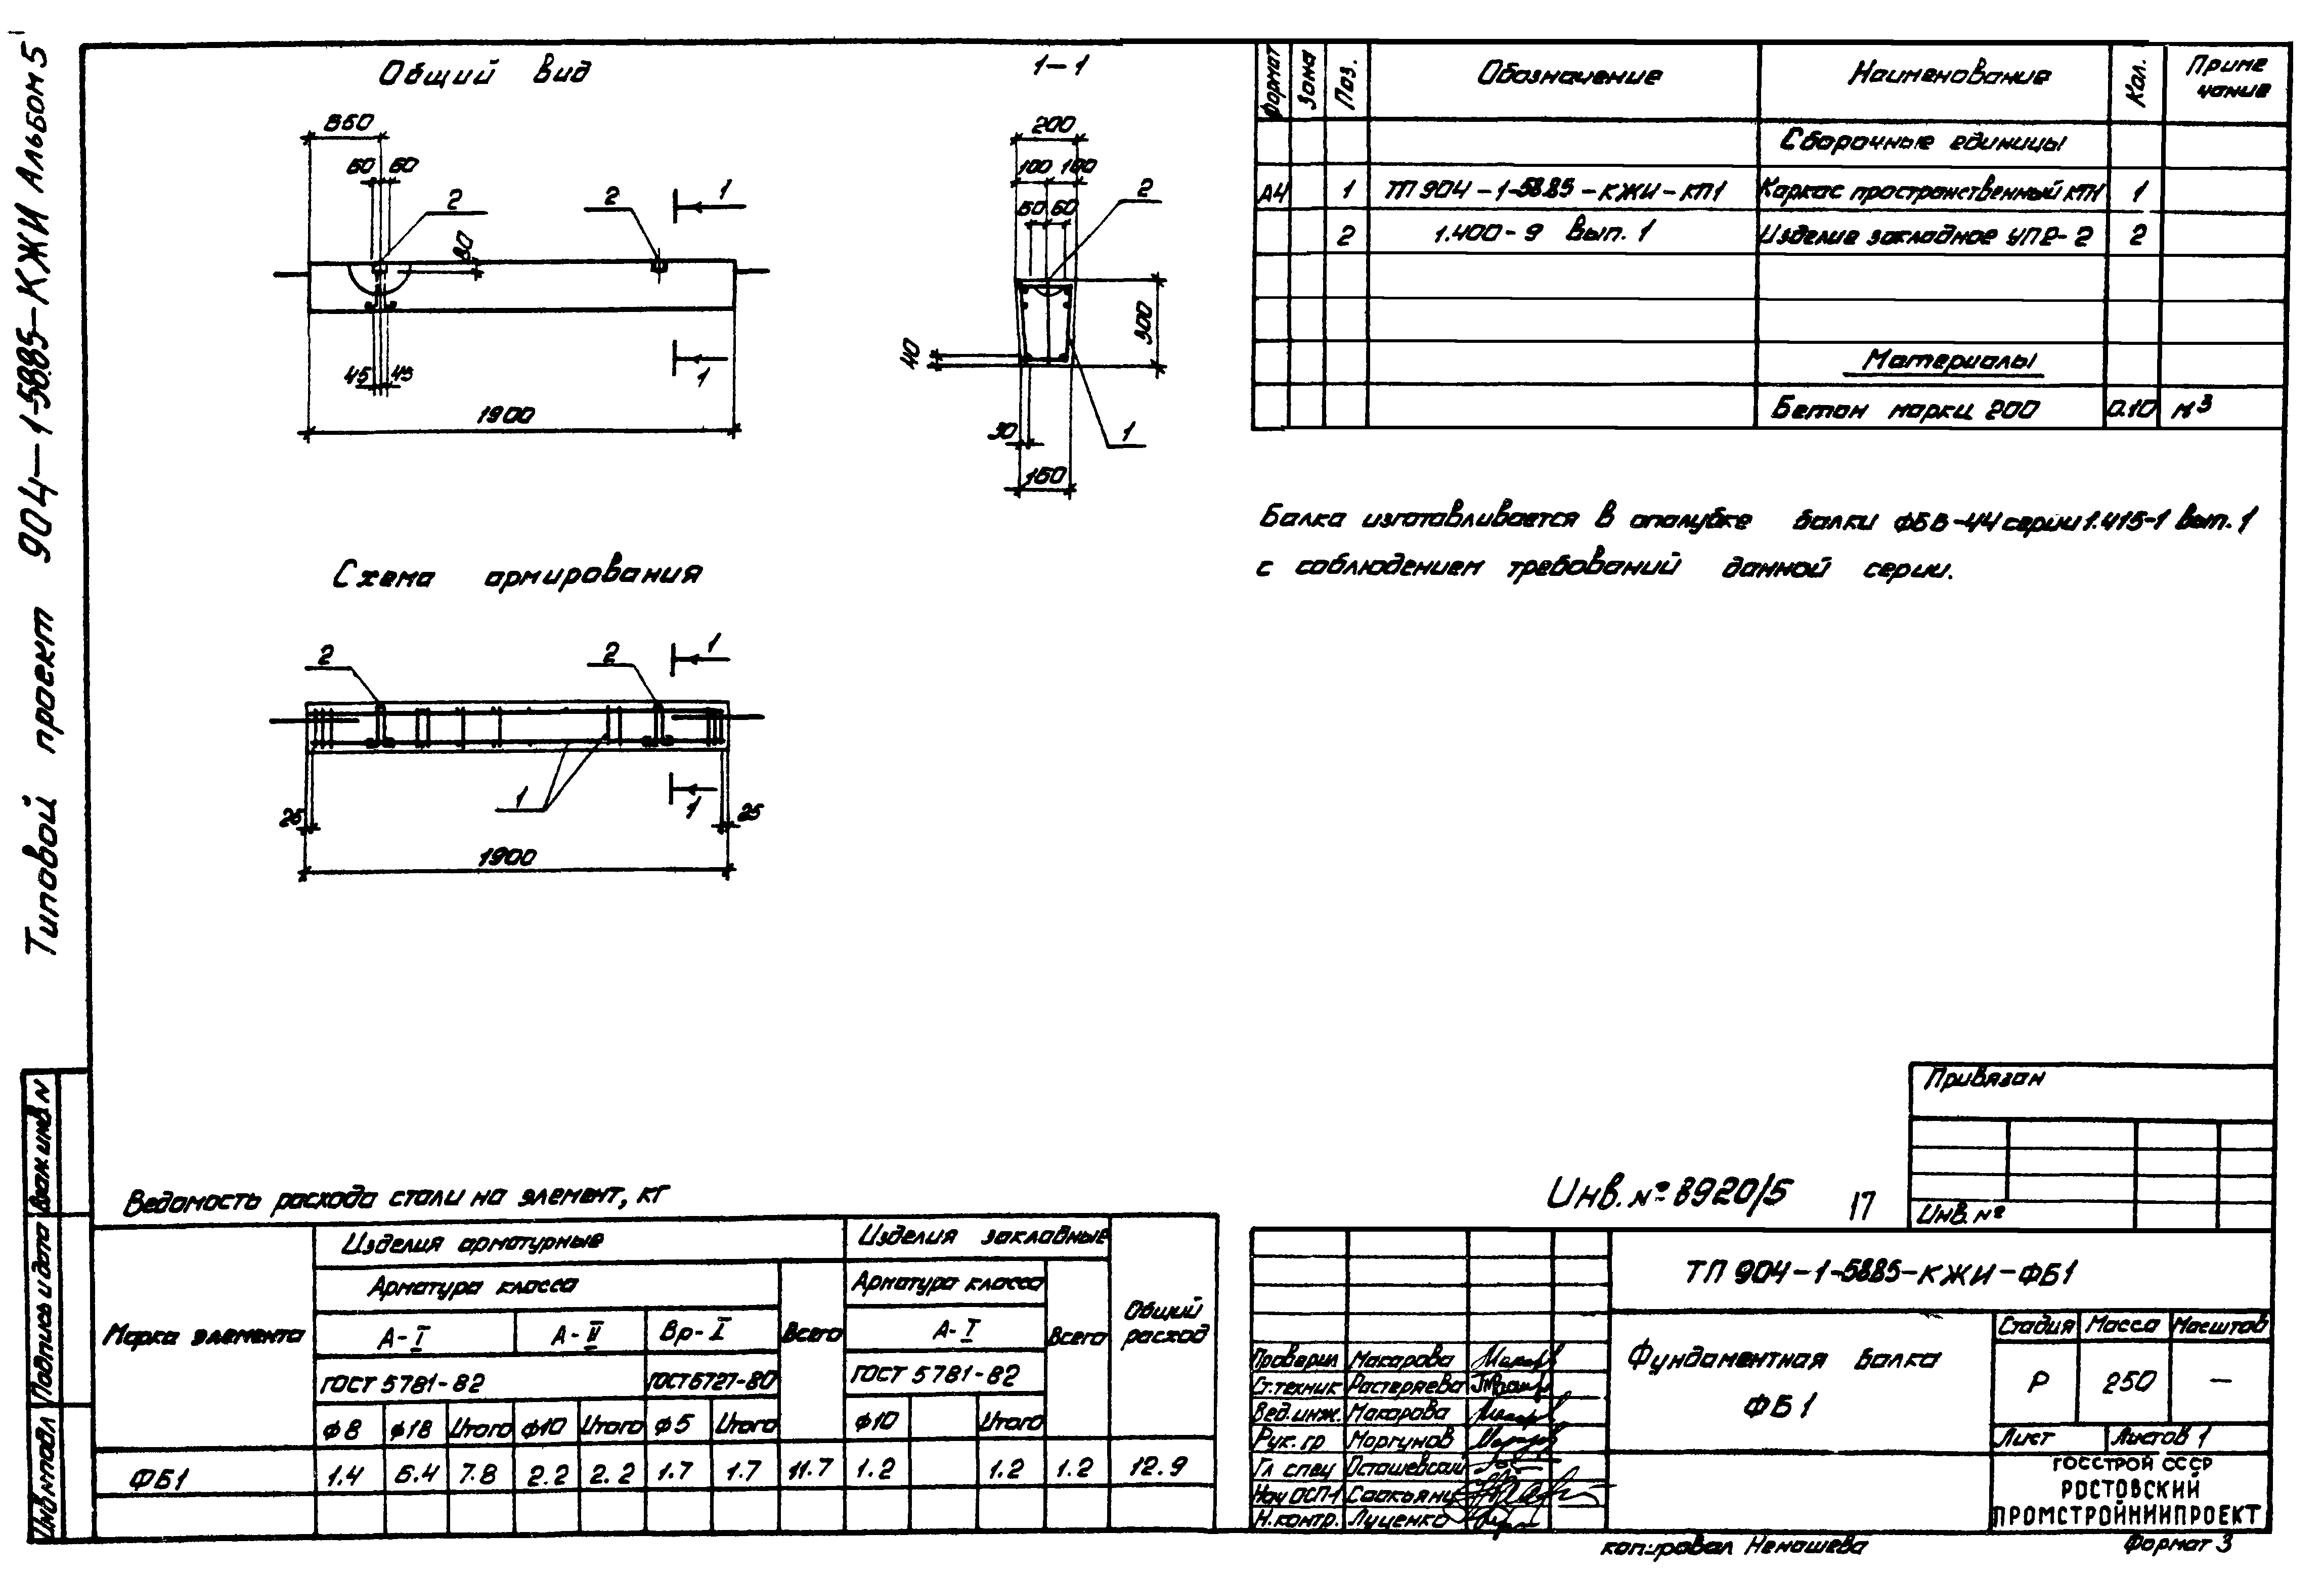 Типовой проект 904-1-58.85-КЖИ Альбом 5
Общий вид
860
60 60
2
2
1
80
45 45
1
1900
1-1
200
100 100
60 60
2
300
40
30
1
160
Схема армирования
2
2
1
1
1
25
25
1900
Формат Зона Поз. Обозначение Наименование Кол. Приме
чание
Сборочные единицы
А4 1 ТП 904-1-58.85-КЖИ-КП1 Каркас пространственный КП1 1
2 1.400-9 Вып. 1 Изделие закладное УП2-2 2
Материалы
Бетон марки 200 0.10 м³
Балка изготавливается в опалубке балки ФБ6-44 серии 1.415-1 Вып. 1
с соблюдением требований данной серии.
Привязан
Инв. №
Инв. № 8920/5 17
Ведомость расхода стали на элемент, кг
Марка элемента Изделия арматурные Изделия закладные Общий расход
Арматура класса Всего Арматура класса Всего
А-I А-II Вр-I А-I
ГОСТ 5781-82 ГОСТ 6727-80 ГОСТ 5781-82
ф8 ф18 Итого ф10 Итого ф5 Итого ф10 Итого
ФБ1 1.4 6.4 7.8 2.2 2.2 1.7 1.7 11.7 1.2 1.2 1.2 12.9
ТП 904-1-58.85-КЖИ-ФБ1
Фундаментная балка
ФБ1
Стадия Масса Масштаб
Р 250 —
Лист Листов 1
ГОССТРОЙ СССР
РОСТОВСКИЙ
ПРОМСТРОЙНИИПРОЕКТ
Проверил Макарова
Ст.техник Растеряева
Вед.инж. Макарова
Рук. гр Моргунов
Гл спец Осташевский
Нач ОСП-1 Саакьянц
Н.контр. Луценко
Инв.№подл Подпись и дата Взам.инв.№
копировал Ненашева
Формат 3